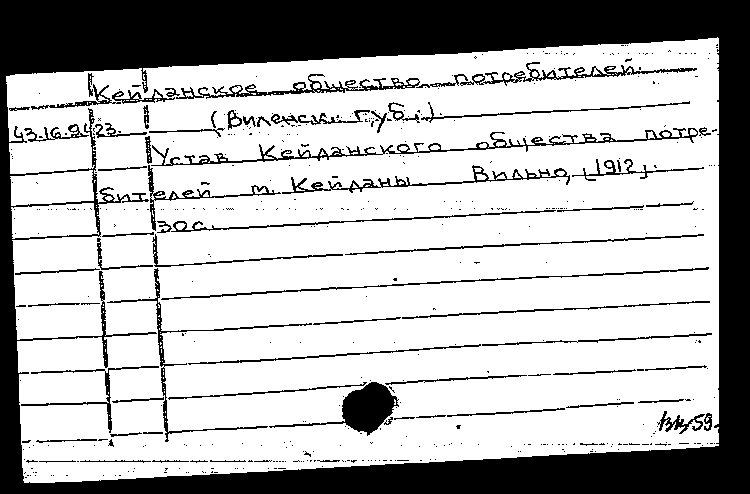 Кейданское общество потребителей.
(Виленск. губ.).
43.16.2423.
Устав Кейданского общества потре-
бителей м. Кейданы. Вильно, [1912].
30с.